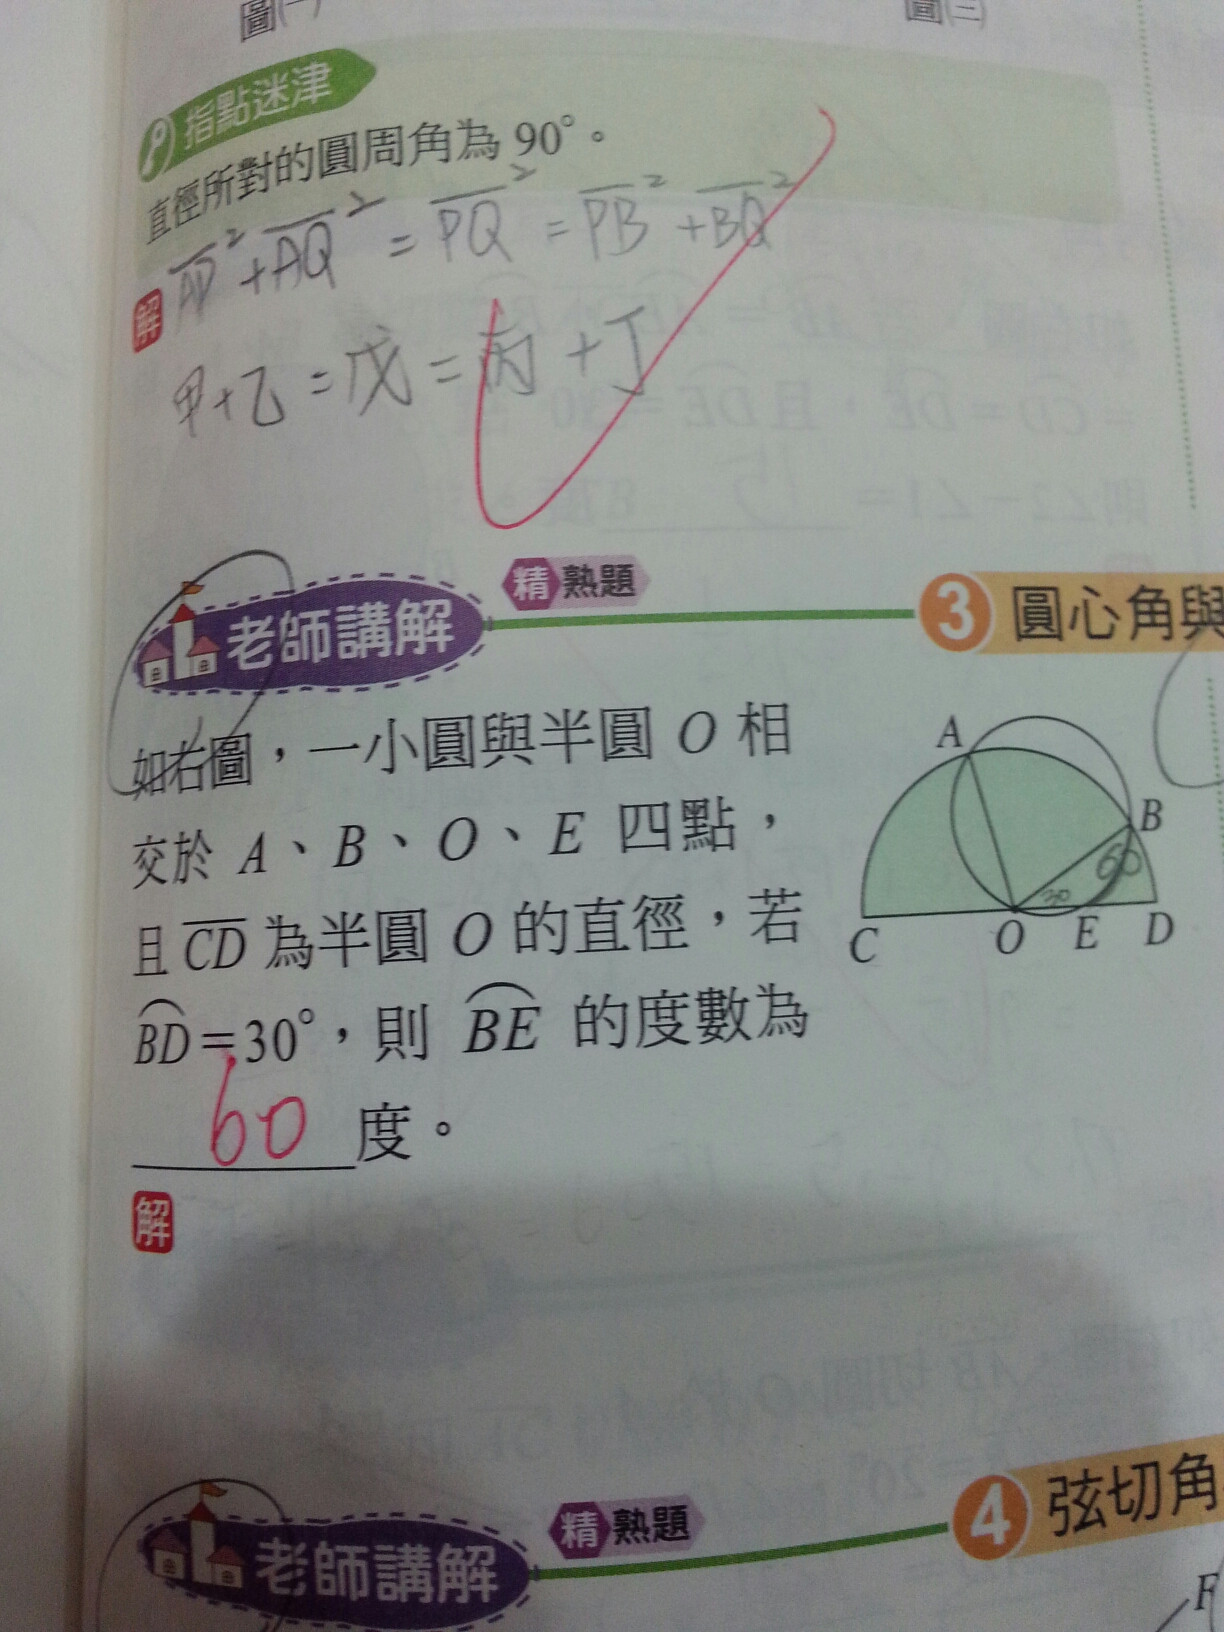 圖(一)
圖(三)
指點迷津
直徑所對的圓周角為 90°。
解
AP²+AQ²=PQ²=PB²+BQ²
甲+乙=戊=丙+丁
老師講解
精熟題
3 圓心角與
如右圖,一小圓與半圓 O 相
交於 A、B、O、E 四點,
且 CD 為半圓 O 的直徑,若
BD=30°,則 BE 的度數為
60 度。
A
B
60
30
C
O
E
D
解
老師講解
精熟題
4 弦切角
F